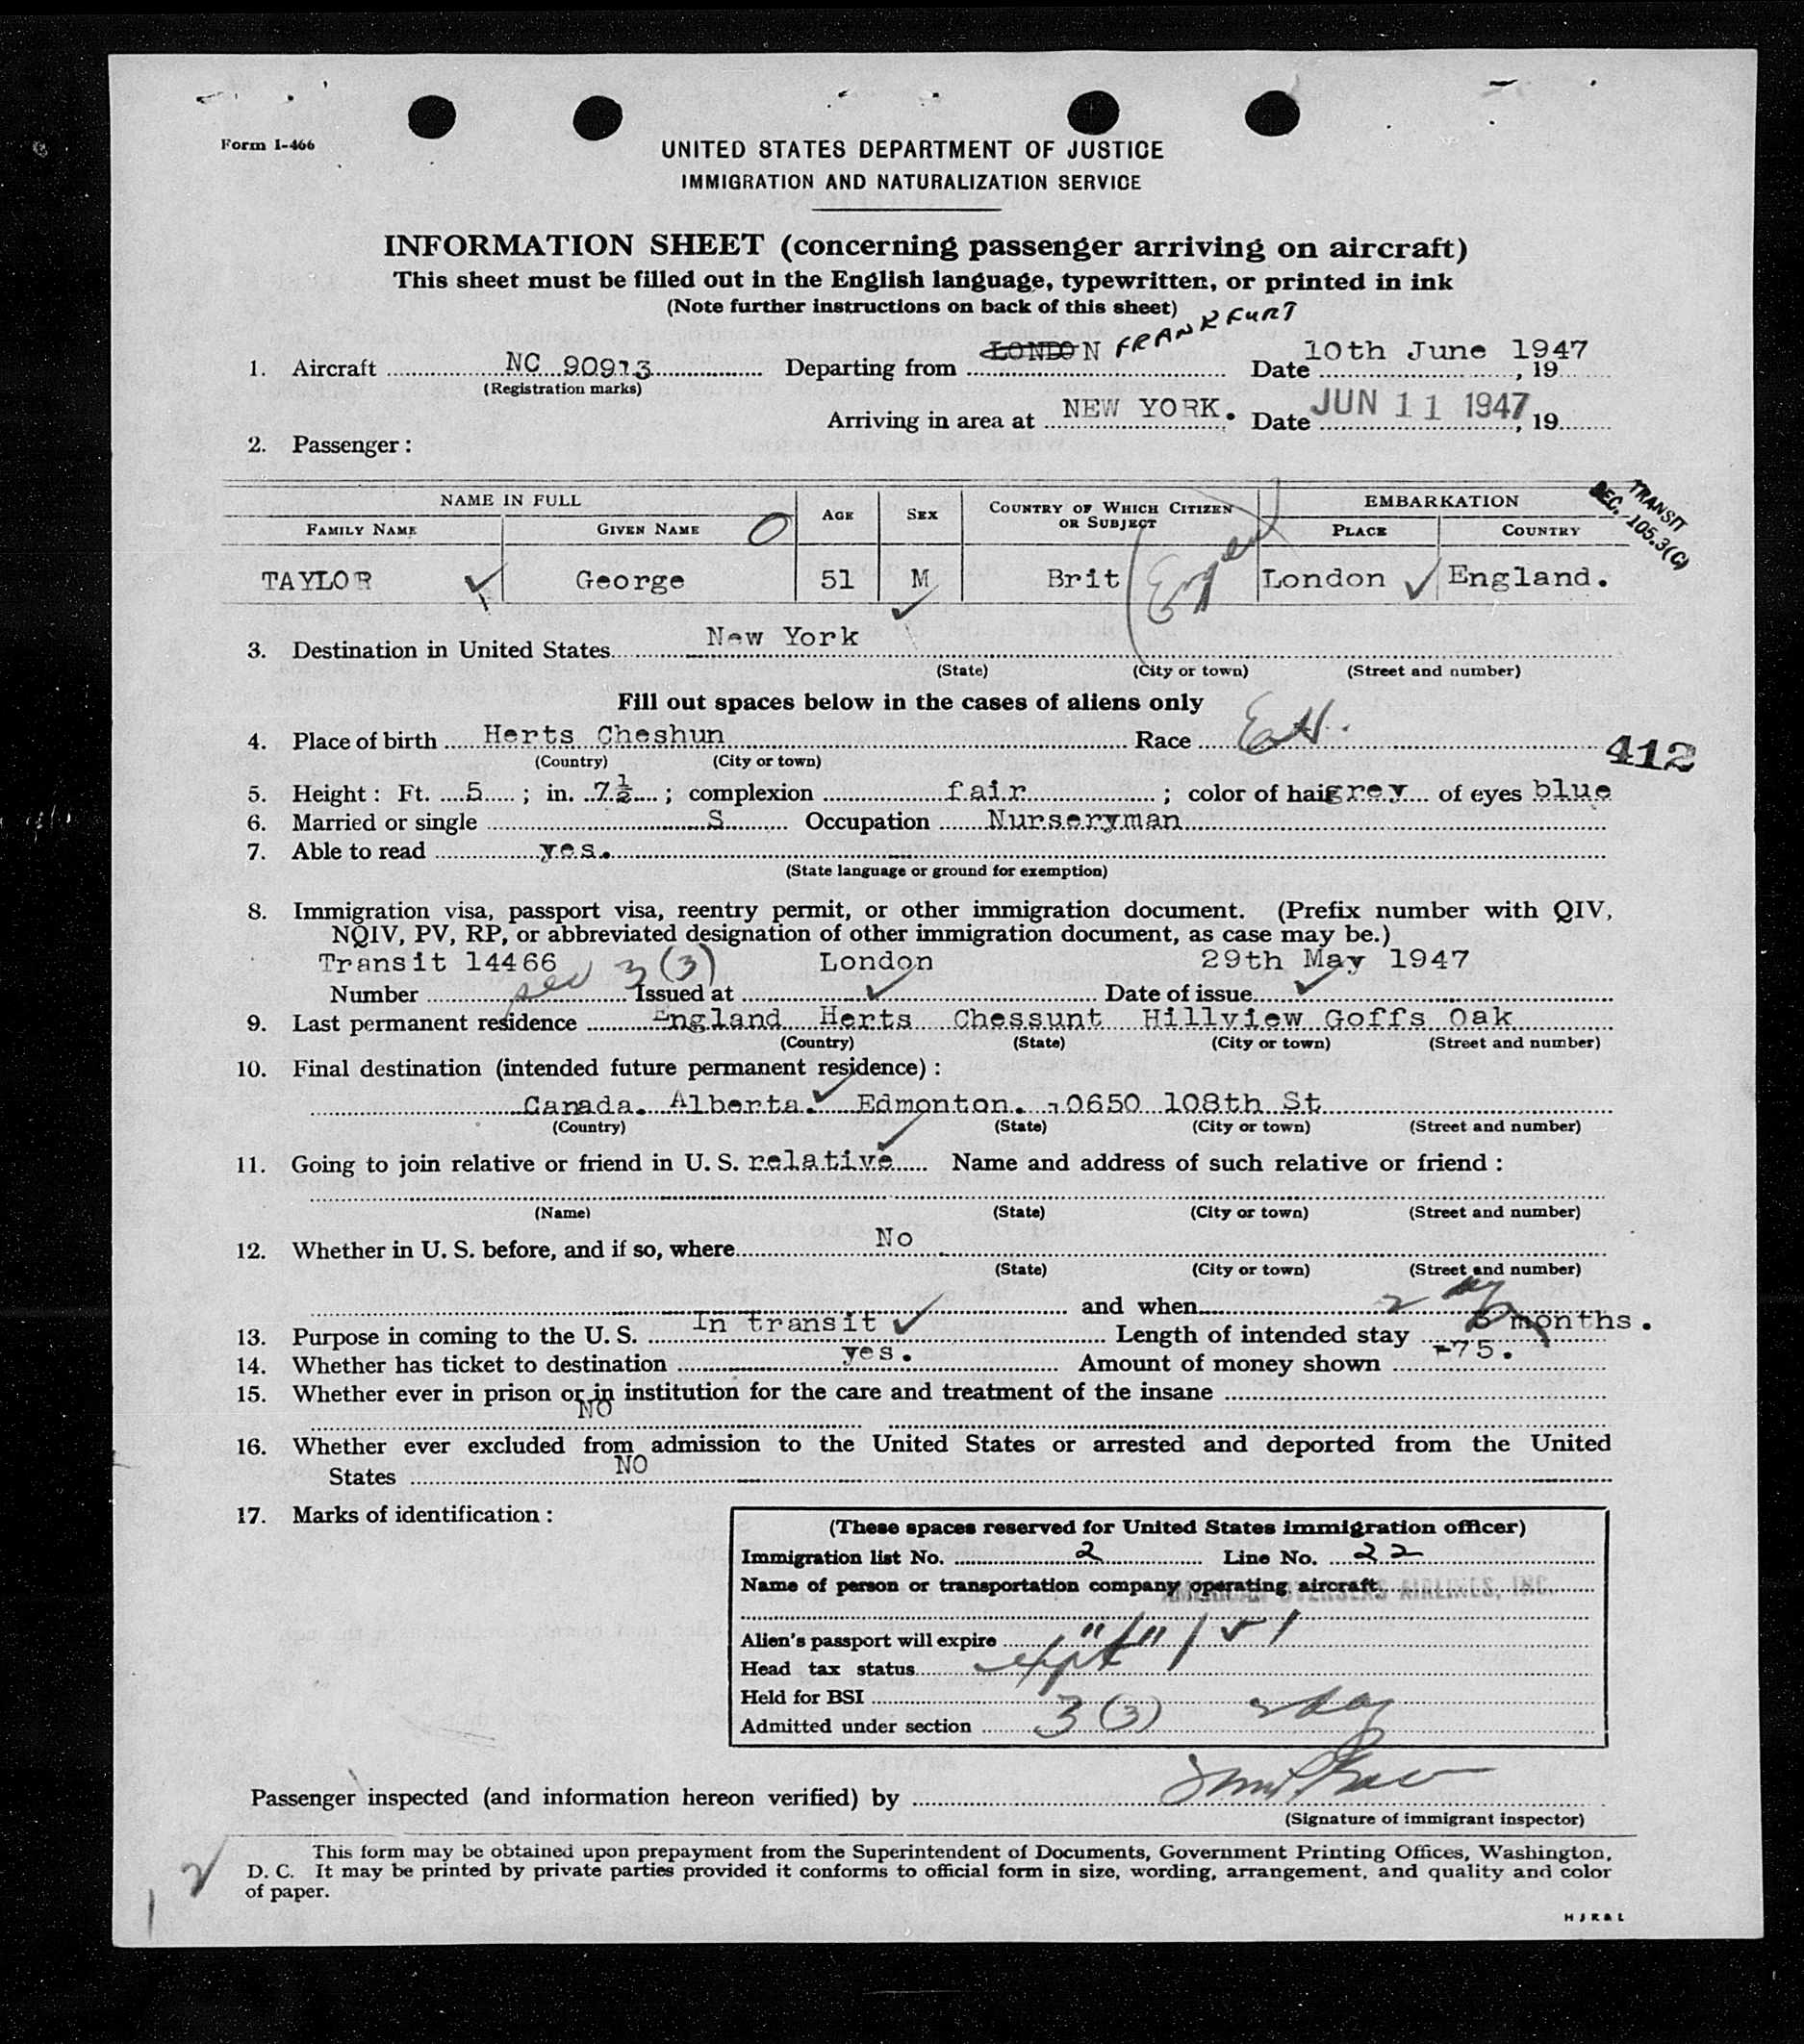 Form I-466
UNITED STATES DEPARTMENT OF JUSTICE
IMMIGRATION AND NATURALIZATION SERVICE
INFORMATION SHEET (concerning passenger arriving on aircraft)
This sheet must be filled out in the English language, typewritten, or printed in ink
(Note further instructions on back of this sheet)
1. Aircraft NC 90913 Departing from LONDON FRANKFURT Date 10th June 1947, 19
(Registration marks)
Arriving in area at NEW YORK. Date JUN 11 1947, 19
2. Passenger:
NAME IN FULL AGE SEX COUNTRY OF WHICH CITIZEN OR SUBJECT EMBARKATION
FAMILY NAME GIVEN NAME PLACE COUNTRY
TRANSIT
SEC. 105.3(C)
TAYLOR George 51 M Brit London England.
3. Destination in United States New York
(State) (City or town) (Street and number)
Fill out spaces below in the cases of aliens only
4. Place of birth Herts Cheshun Race
(Country) (City or town)
412
5. Height: Ft. 5; in. 7½; complexion fair; color of hair grey of eyes blue
6. Married or single S Occupation Nurseryman
7. Able to read yes.
(State language or ground for exemption)
8. Immigration visa, passport visa, reentry permit, or other immigration document. (Prefix number with QIV,
NQIV, PV, RP, or abbreviated designation of other immigration document, as case may be.)
Transit 14466 sec 3(3) London 29th May 1947
Number Issued at Date of issue
9. Last permanent residence England Herts Chessunt Hillview Goffs Oak
(Country) (State) (City or town) (Street and number)
10. Final destination (intended future permanent residence):
Canada. Alberta. Edmonton. 10650 108th St
(Country) (State) (City or town) (Street and number)
11. Going to join relative or friend in U. S. relative Name and address of such relative or friend:
(Name) (State) (City or town) (Street and number)
12. Whether in U. S. before, and if so, where No
(State) (City or town) (Street and number)
and when
13. Purpose in coming to the U. S. In transit Length of intended stay months.
14. Whether has ticket to destination yes. Amount of money shown 75.
15. Whether ever in prison or in institution for the care and treatment of the insane
NO
16. Whether ever excluded from admission to the United States or arrested and deported from the United
States NO
17. Marks of identification:
(These spaces reserved for United States immigration officer)
Immigration list No. 2 Line No. 22
Name of person or transportation company operating aircraft AMERICAN OVERSEAS AIRLINES, INC.
Alien's passport will expire
Head tax status
Held for BSI
Admitted under section 3(3)
Passenger inspected (and information hereon verified) by
(Signature of immigrant inspector)
This form may be obtained upon prepayment from the Superintendent of Documents, Government Printing Offices, Washington,
D. C. It may be printed by private parties provided it conforms to official form in size, wording, arrangement, and quality and color
of paper.
H J R & L